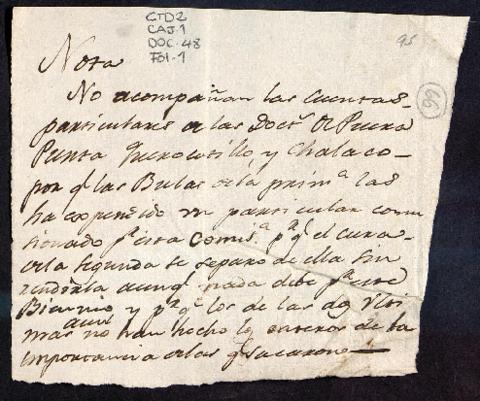 CTD2
CAJ.1
DOC.48
FOI-1
95
66
Nota
No acompañan las Cuentas
particulares de las Doct.s de Piura
Punta y Chalaco
por q.e las Bulas de la prim.a las
ha expendido un particular comi
sionado p.r esta Comis.a p.r q.e el cura
de la segunda se separo de ella sin
rendirla aunq.e nada debe p.r este
Biennio y p.r q.e los de las dos ulti
mas aun no han hecho los enteros de la
importancia de las q.e sacaron